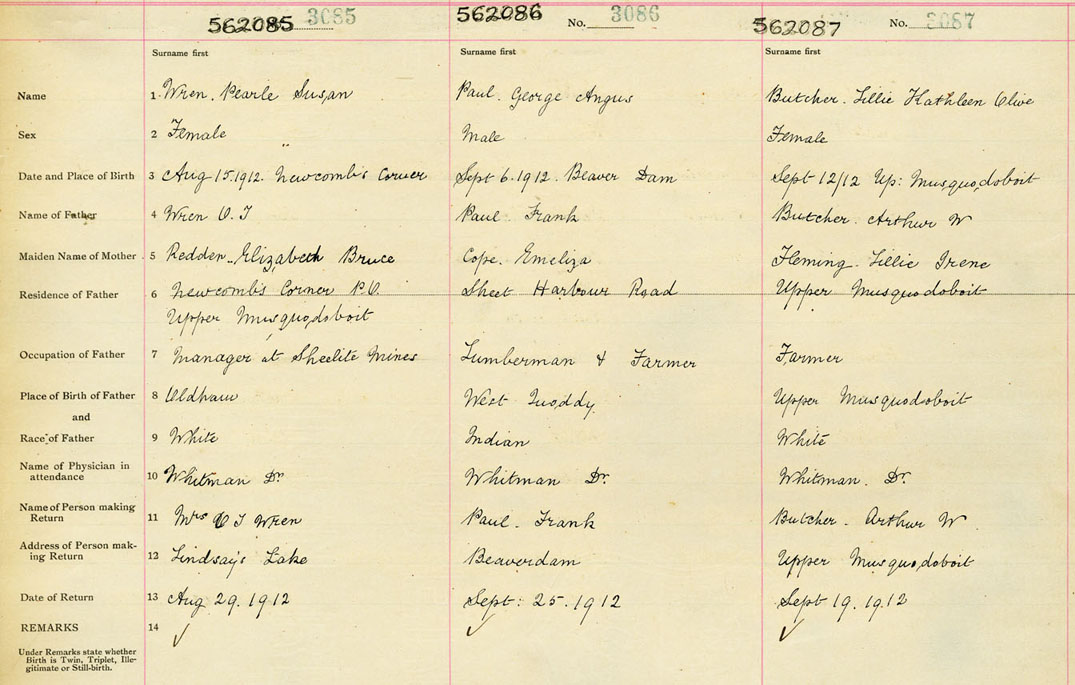 562085 3085 562086 No. 3086 562087 No. 3087
Surname first Surname first Surname first
Name 1 Wren. Pearle Susan Paul. George Angus Butcher. Lillie Kathleen Olive
Sex 2 Female " Male Female
Date and Place of Birth 3 Aug 15.1912. Newcomb's Corner Sept 6.1912. Beaver Dam Sept 12/12 Up: Musquodoboit
Name of Father 4 Wren O. J Paul Frank Butcher. Arthur W
Maiden Name of Mother 5 Redden.. Elizabeth Bruce Cope. Emeliza Fleming. Lillie Irene
Residence of Father 6 Newcomb's Corner P.O. Sheet Harbour Road Upper Musquodoboit
Upper Musquodoboit
Occupation of Father 7 Manager at Sheelite Mines Lumberman & Farmer Farmer
Place of Birth of Father 8 Oldham West Quoddy. Upper Musquodoboit
and
Race of Father 9 White Indian White
Name of Physician in
attendance 10 Whitman Dr. Whitman Dr. Whitman. Dr.
Name of Person making
Return 11 Mrs O J Wren Paul. Frank Butcher. Arthur W.
Address of Person mak-
ing Return 12 Lindsay's Lake Beaverdam Upper Musquodoboit
Date of Return 13 Aug 29. 1912 Sept: 25. 1912 Sept 19. 1912
REMARKS 14 ✓ ✓ ✓
Under Remarks state whether
Birth is Twin, Triplet, Ille-
gitimate or Still-birth.